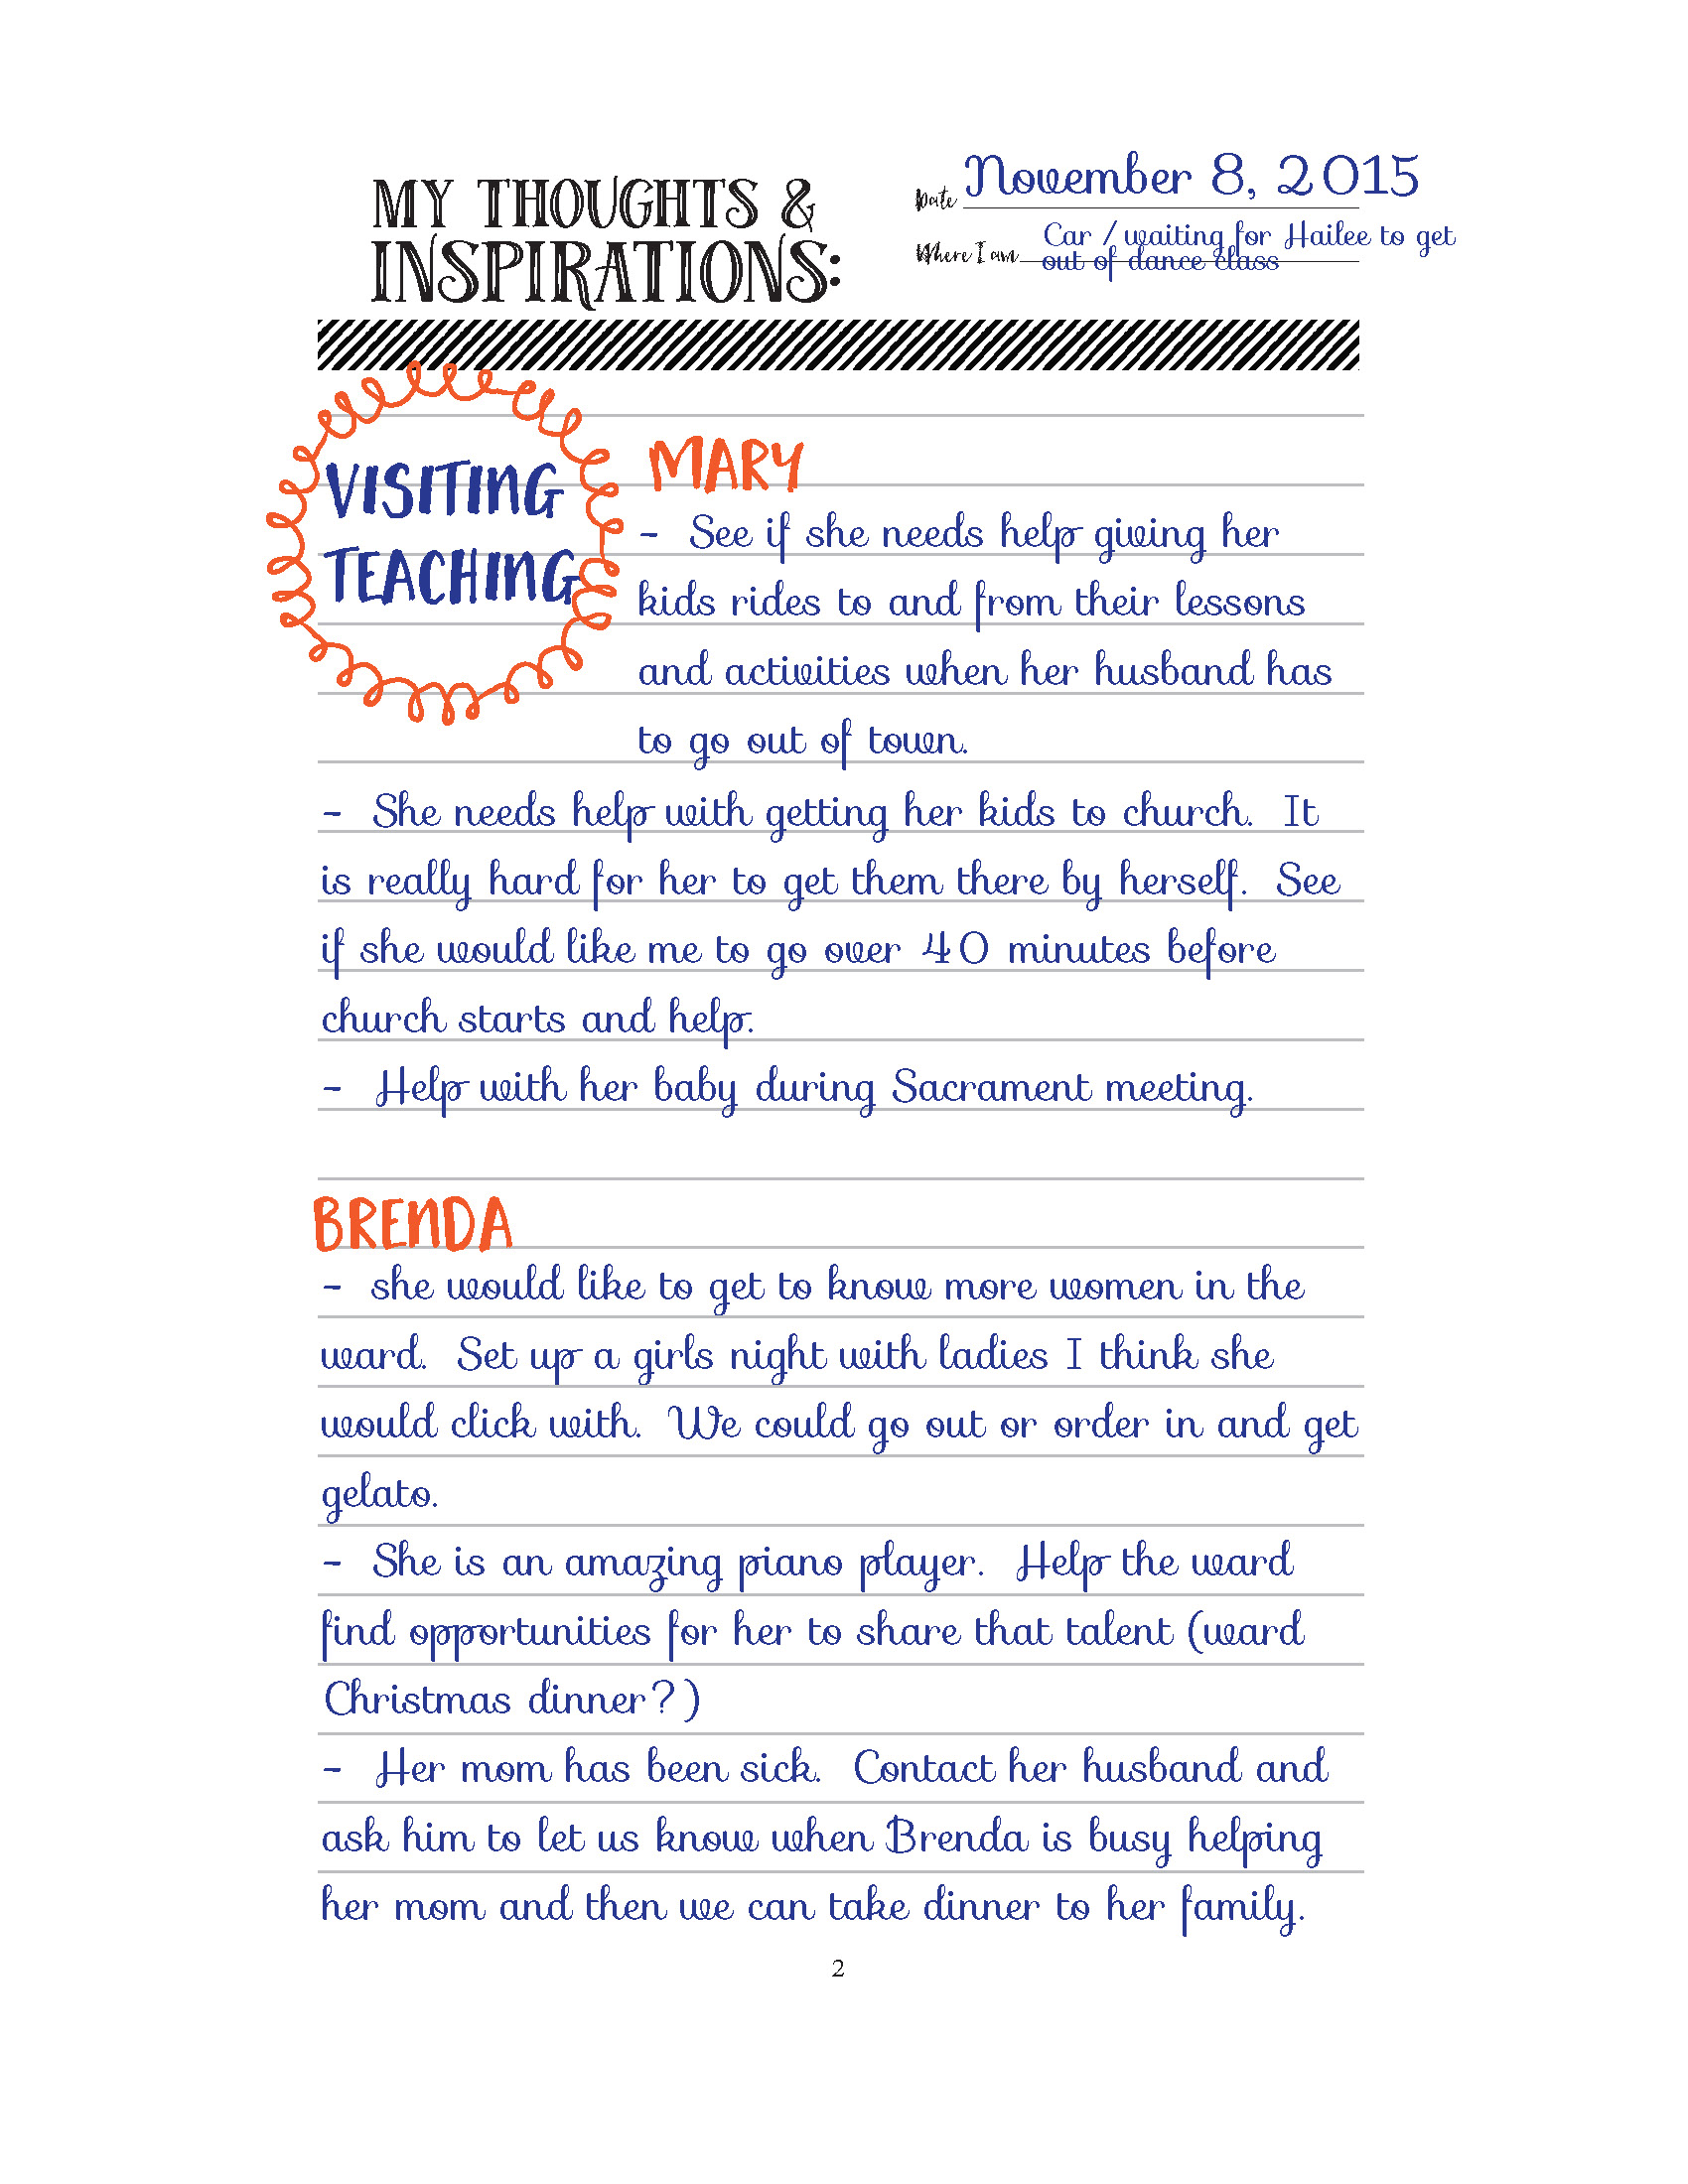 MY THOUGHTS &
INSPIRATIONS:
Date November 8, 2015
Where I am Car / waiting for Hailee to get
out of dance class
VISITING
TEACHING
MARY
- See if she needs help giving her
kids rides to and from their lessons
and activities when her husband has
to go out of town.
- She needs help with getting her kids to church. It
is really hard for her to get them there by herself. See
if she would like me to go over 40 minutes before
church starts and help.
- Help with her baby during Sacrament meeting.
BRENDA
- she would like to get to know more women in the
ward. Set up a girls night with ladies I think she
would click with. We could go out or order in and get
gelato.
- She is an amazing piano player. Help the ward
find opportunities for her to share that talent (ward
Christmas dinner?)
- Her mom has been sick. Contact her husband and
ask him to let us know when Brenda is busy helping
her mom and then we can take dinner to her family.
2